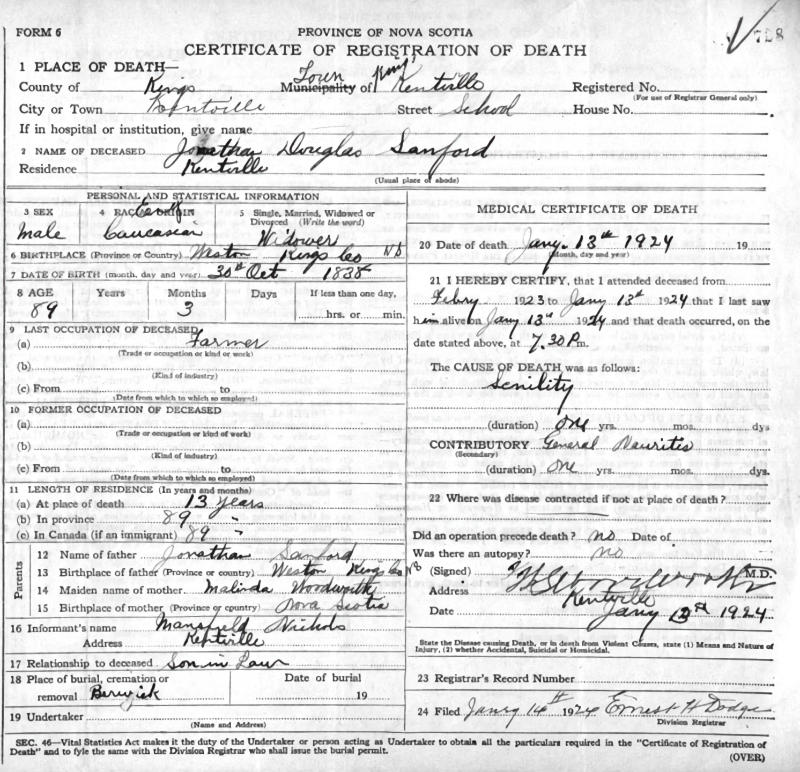 FORM 6
PROVINCE OF NOVA SCOTIA
728
CERTIFICATE OF REGISTRATION OF DEATH
1 PLACE OF DEATH—
County of Kings Town Municipality of Kentville Registered No.
(For use of Registrar General only)
City or Town Kentville Street School House No.
If in hospital or institution, give name
2 NAME OF DECEASED Jonathan Douglas Sanford
Residence Kentville
(Usual place of abode)
PERSONAL AND STATISTICAL INFORMATION
3 SEX
Male
4 RACIAL
Caucasian
5 Single, Married, Widowed or Divorced (Write the word)
Widower
6 BIRTHPLACE (Province or Country) Weston Kings Co NS
7 DATE OF BIRTH (month, day and year) 30th Oct 1838
8 AGE Years Months Days If less than one day,
89 3 hrs. or min.
9 LAST OCCUPATION OF DECEASED
(a) Farmer
(Trade or occupation or kind or work)
(b)
(Kind of industry)
(c) From to
(Date from which to which so employed)
10 FORMER OCCUPATION OF DECEASED
(a)
(Trade or occupation or kind of work)
(b)
(Kind of industry)
(c) From to
(Date from which to which so employed)
11 LENGTH OF RESIDENCE (In years and months)
(a) At place of death 13 years
(b) In province 89 "
(c) In Canada (if an immigrant) 89 "
Parents
12 Name of father Jonathan Sanford
13 Birthplace of father (Province or country) Weston Kings Co NS
14 Maiden name of mother Malinda Woodworth
15 Birthplace of mother (Province or country) Nova Scotia
16 Informant's name Mansfield Nichols
Address Kentville
17 Relationship to deceased Son in Law
18 Place of burial, cremation or removal Berwick
Date of burial
19
19 Undertaker
(Name and Address)
MEDICAL CERTIFICATE OF DEATH
20 Date of death Jany. 13th 1924 19
(Month, day and year)
21 I HEREBY CERTIFY, that I attended deceased from
Febry 1923 to Jany 13th 1924 that I last saw
him alive on Jany 13th 1924 and that death occurred, on the
date stated above, at 7.30 Pm.
The CAUSE OF DEATH was as follows:
Senility
(duration) one yrs. mos. dys
CONTRIBUTORY General
(Secondary)
(duration) One yrs. mos. dys.
22 Where was disease contracted if not at place of death?
Did an operation precede death? no Date of
Was there an autopsy? no
(Signed) M.D.
Address Kentville
Date Jany 1924
State the Disease causing Death, or in death from Violent Causes, state (1) Means and Nature of
Injury, (2) whether Accidental, Suicidal or Homicidal.
23 Registrar's Record Number
24 Filed Janry 14th 1924 Ernest H Dodge
Division Registrar
SEC. 46—Vital Statistics Act makes it the duty of the Undertaker or person acting as Undertaker to obtain all the particulars required in the "Certificate of Registration of
Death" and to fyle the same with the Division Registrar who shall issue the burial permit.
(OVER)